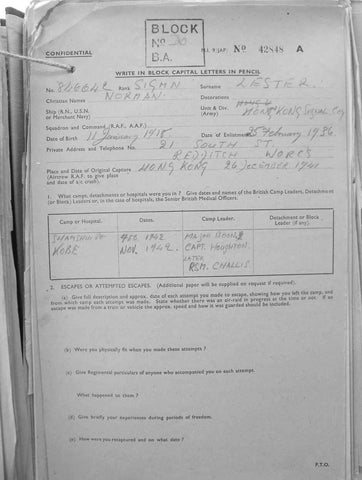 BLOCK
No 20
B.A.
CONFIDENTIAL
M.I. 9/JAP/ No 42848 A
WRITE IN BLOCK CAPITAL LETTERS IN PENCIL.
No. Rank SIGMN Surname LESTER
Christian Names NORMAN Decorations
Ship (R.N., U.S.N. or Merchant Navy) Unit & Div. (Army) HONG KONG SIGNAL COY
Squadron and Command (R.A.F., A.A.F.)
Date of Birth 11 January 1918 Date of Enlistment 25 February 1936
Private Address and Telephone No. 21 SOUTH ST.
REDDITCH WORCS
Place and Date of Original Capture HONG KONG 26 December 1941
(Aircrew R.A.F. to give place
and date of a/c crash).
1. What camps, detachments or hospitals were you in? Give dates and names of the British Camp Leaders, Detachment
(or Block) Leaders or, in case of hospitals, the Senior British Medical Officers.
Camp or Hospital. Dates. Camp Leader. Detachment or Block Leader (if any).
SHAMSHUIPO FEB. 1942 MAJOR BOON
KOBE NOV. 1942 CAPT. HOUGHTON.
LATER
R.S.M. CHALLIS
2. ESCAPES OR ATTEMPTED ESCAPES. (Additional paper will be supplied on request if required).
(a) Give full description and approx. date of each attempt you made to escape, showing how you left the camp, and
from which camp each attempt was made. State whether there was an air-raid in progress at the time or not. If an
escape was made from a train or vehicle the approx. speed and how it was guarded should be included.
(b) Were you physically fit when you made these attempts?
(c) Give Regimental particulars of anyone who accompanied you on each attempt.
What happened to them?
(d) Give briefly your experiences during periods of freedom.
(e) How were you recaptured and on what date?
P.T.O.